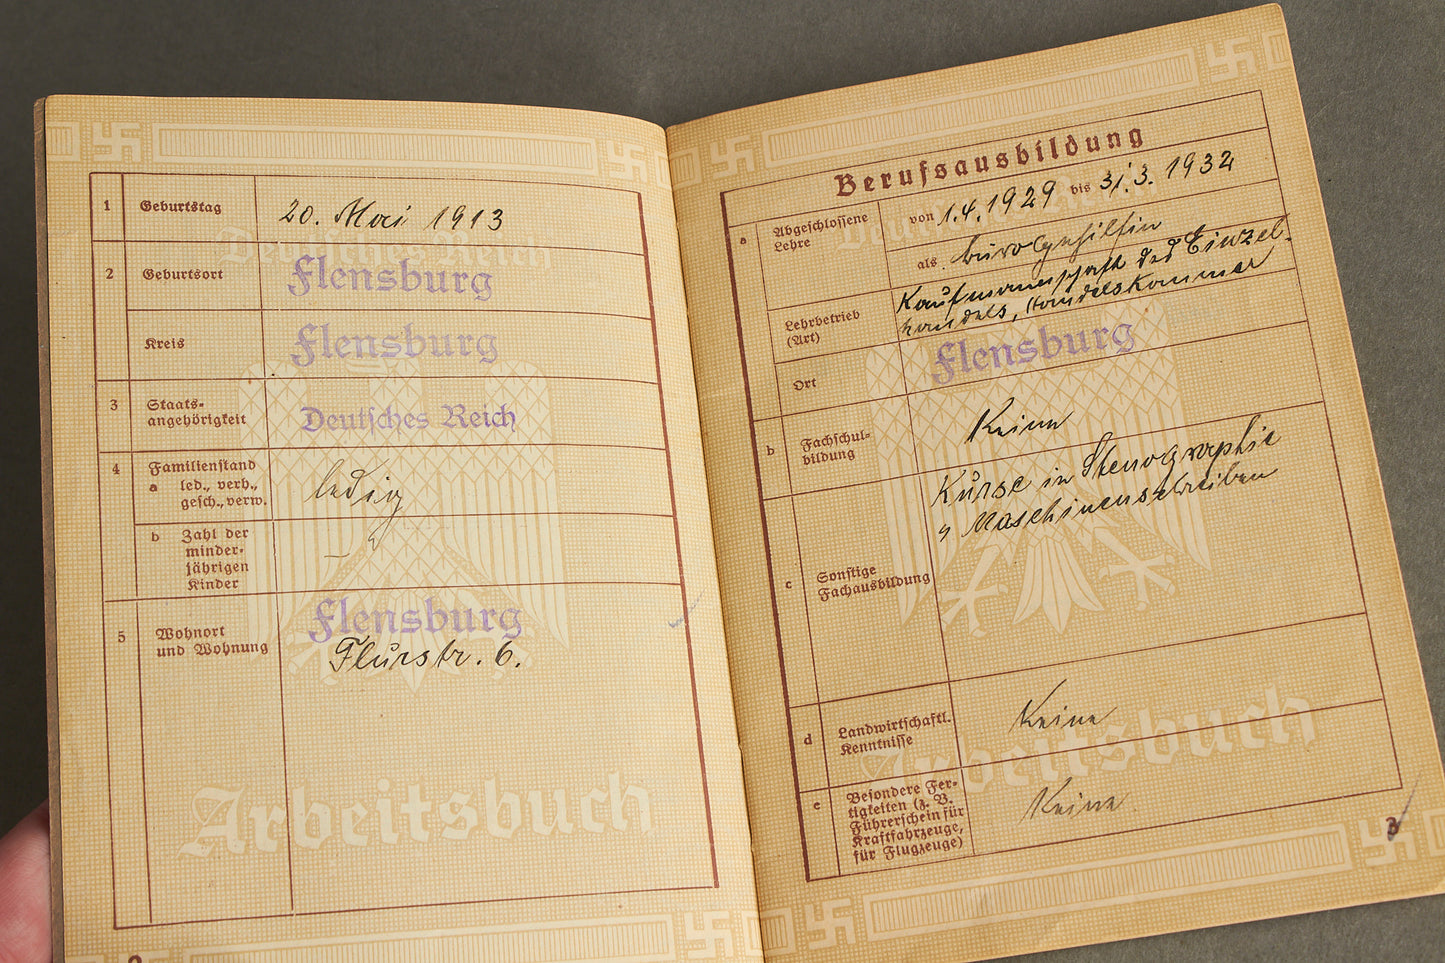 Deutsches Reich
1 Geburtstag 20. Mai 1913
2 Geburtsort Flensburg
Kreis Flensburg
3 Staats-
angehörigkeit Deutsches Reich
4 Familienstand
a led., verh.,
gesch., verw. ledig
b Zahl der
minder-
jährigen
Kinder —
5 Wohnort
und Wohnung Flensburg
Flurstr. 6.
Arbeitsbuch
2
Berufsausbildung
a Abgeschlossene
Lehre von 1.4.1929 bis 31.3.1932
als Bürogehilfin
Lehrbetrieb
(Art) Kaufmannschaft des Einzel-
handels, Handelskammer
Ort Flensburg
b Fachschul-
bildung Keine
c Sonstige
Fachausbildung Kurse in Stenographie
u Maschinenschreiben
d Landwirtschaftl.
Kenntnisse Keine
e Besondere Fer-
tigkeiten (z. B.
Führerschein für
Kraftfahrzeuge,
für Flugzeuge) Keine
Arbeitsbuch
3